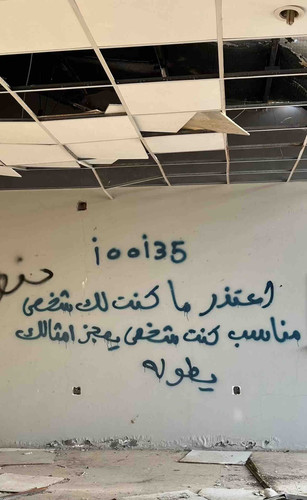 iooi35
اعتذر ما كنت لك شخص
مناسب كنت شخص يعجز امثالك
يطوله